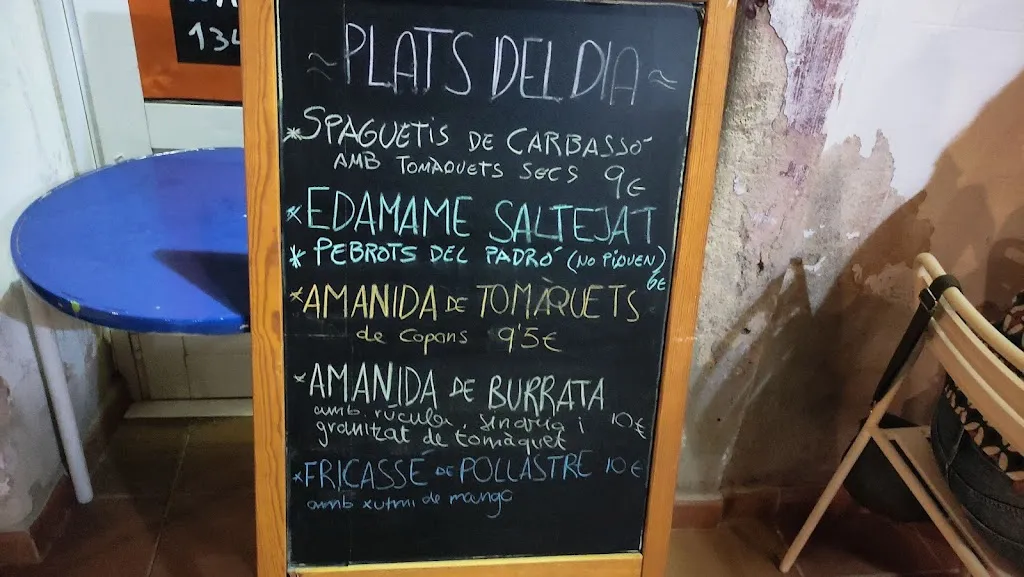 134
≈ PLATS DEL DIA ≈
* SPAGUETIS DE CARBASSÓ
AMB TOMAQUETS SECS 9€
* EDAMAME SALTEJAT
* PEBROTS DEL PADRÓ (NO PIQUEN)
6€
* AMANIDA DE TOMÀQUETS
de Copons 9'5€
* AMANIDA DE BURRATA
amb rucula, sindria i 10€
granitzat de tomàquet
* FRICASSÉ DE POLLASTRE 10€
amb xutni de mango